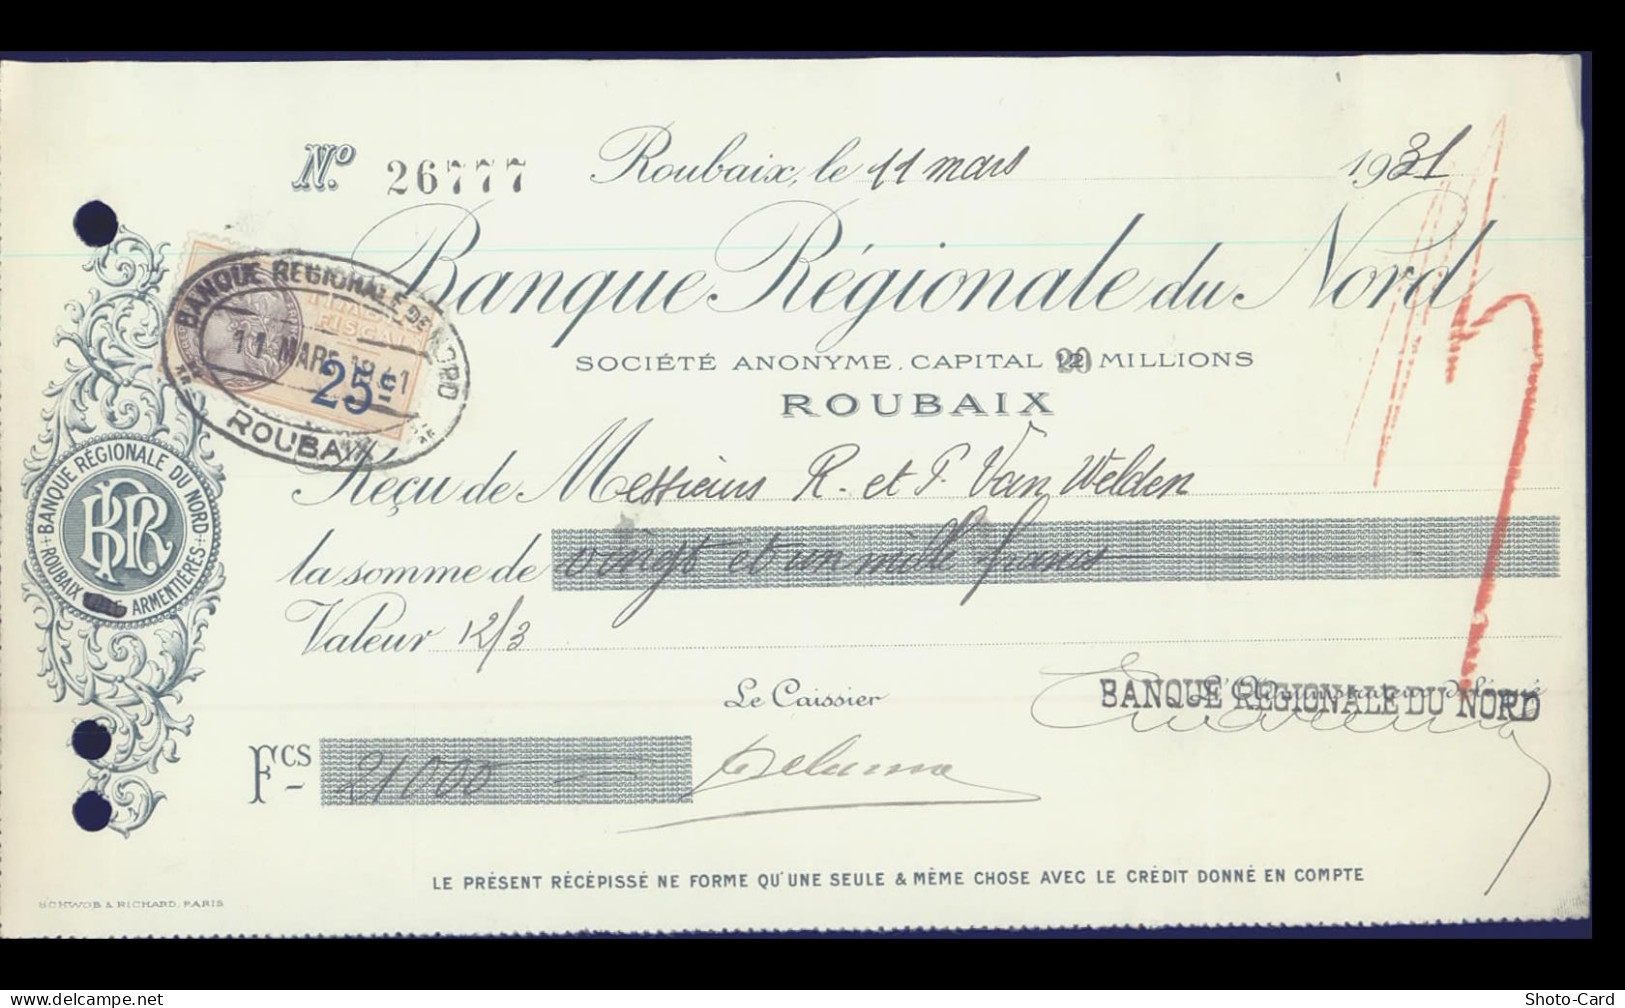 Nº 26777 Roubaix, le 11 mars 1931
Banque Régionale du Nord
SOCIÉTÉ ANONYME, CAPITAL 20 MILLIONS
ROUBAIX
BANQUE REGIONALE DU NORD
11 MARS 1931
ROUBAIX
FISCAL
25c
BANQUE RÉGIONALE DU NORD
BRN
ROUBAIX ARMENTIÈRES
Reçu de Messieurs R. et P. Van Welden
la somme de vingt et un mille francs
Valeur 12/3
Le Caissier
BANQUE REGIONALE DU NORD
Fcs 21000
LE PRÉSENT RÉCÉPISSÉ NE FORME QU'UNE SEULE & MÊME CHOSE AVEC LE CRÉDIT DONNÉ EN COMPTE
SCHWOB & RICHARD, PARIS
www.delcampe.net
Shoto-Card